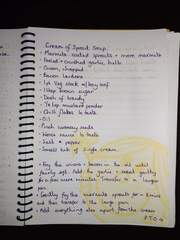 Cream of Sprout Soup.
• Marmite coated sprouts + more marmite
• Peeled + crushed garlic bulb
• Onion, chopped
• Bacon lardons
• 1pt Veg stock w/ bay leaf
• 1tbsp brown sugar
• Dash of brandy
• 1tsp mustard powder
• Chilli flakes ½ tsp
• Oil
• Pinch caraway seeds
• Worc sauce ½ tsp
• Salt + pepper
• Small tub of single cream.
• Fry the onions + bacon in the oil until
fairly soft. Add the garlic + sweat gently
for a few more minutes. Transfer to a larger
pan.
• Gently fry the marmite sprouts for 5 mins
and then transfer to the large pan.
• Add everything else apart from the cream
P.T.O →